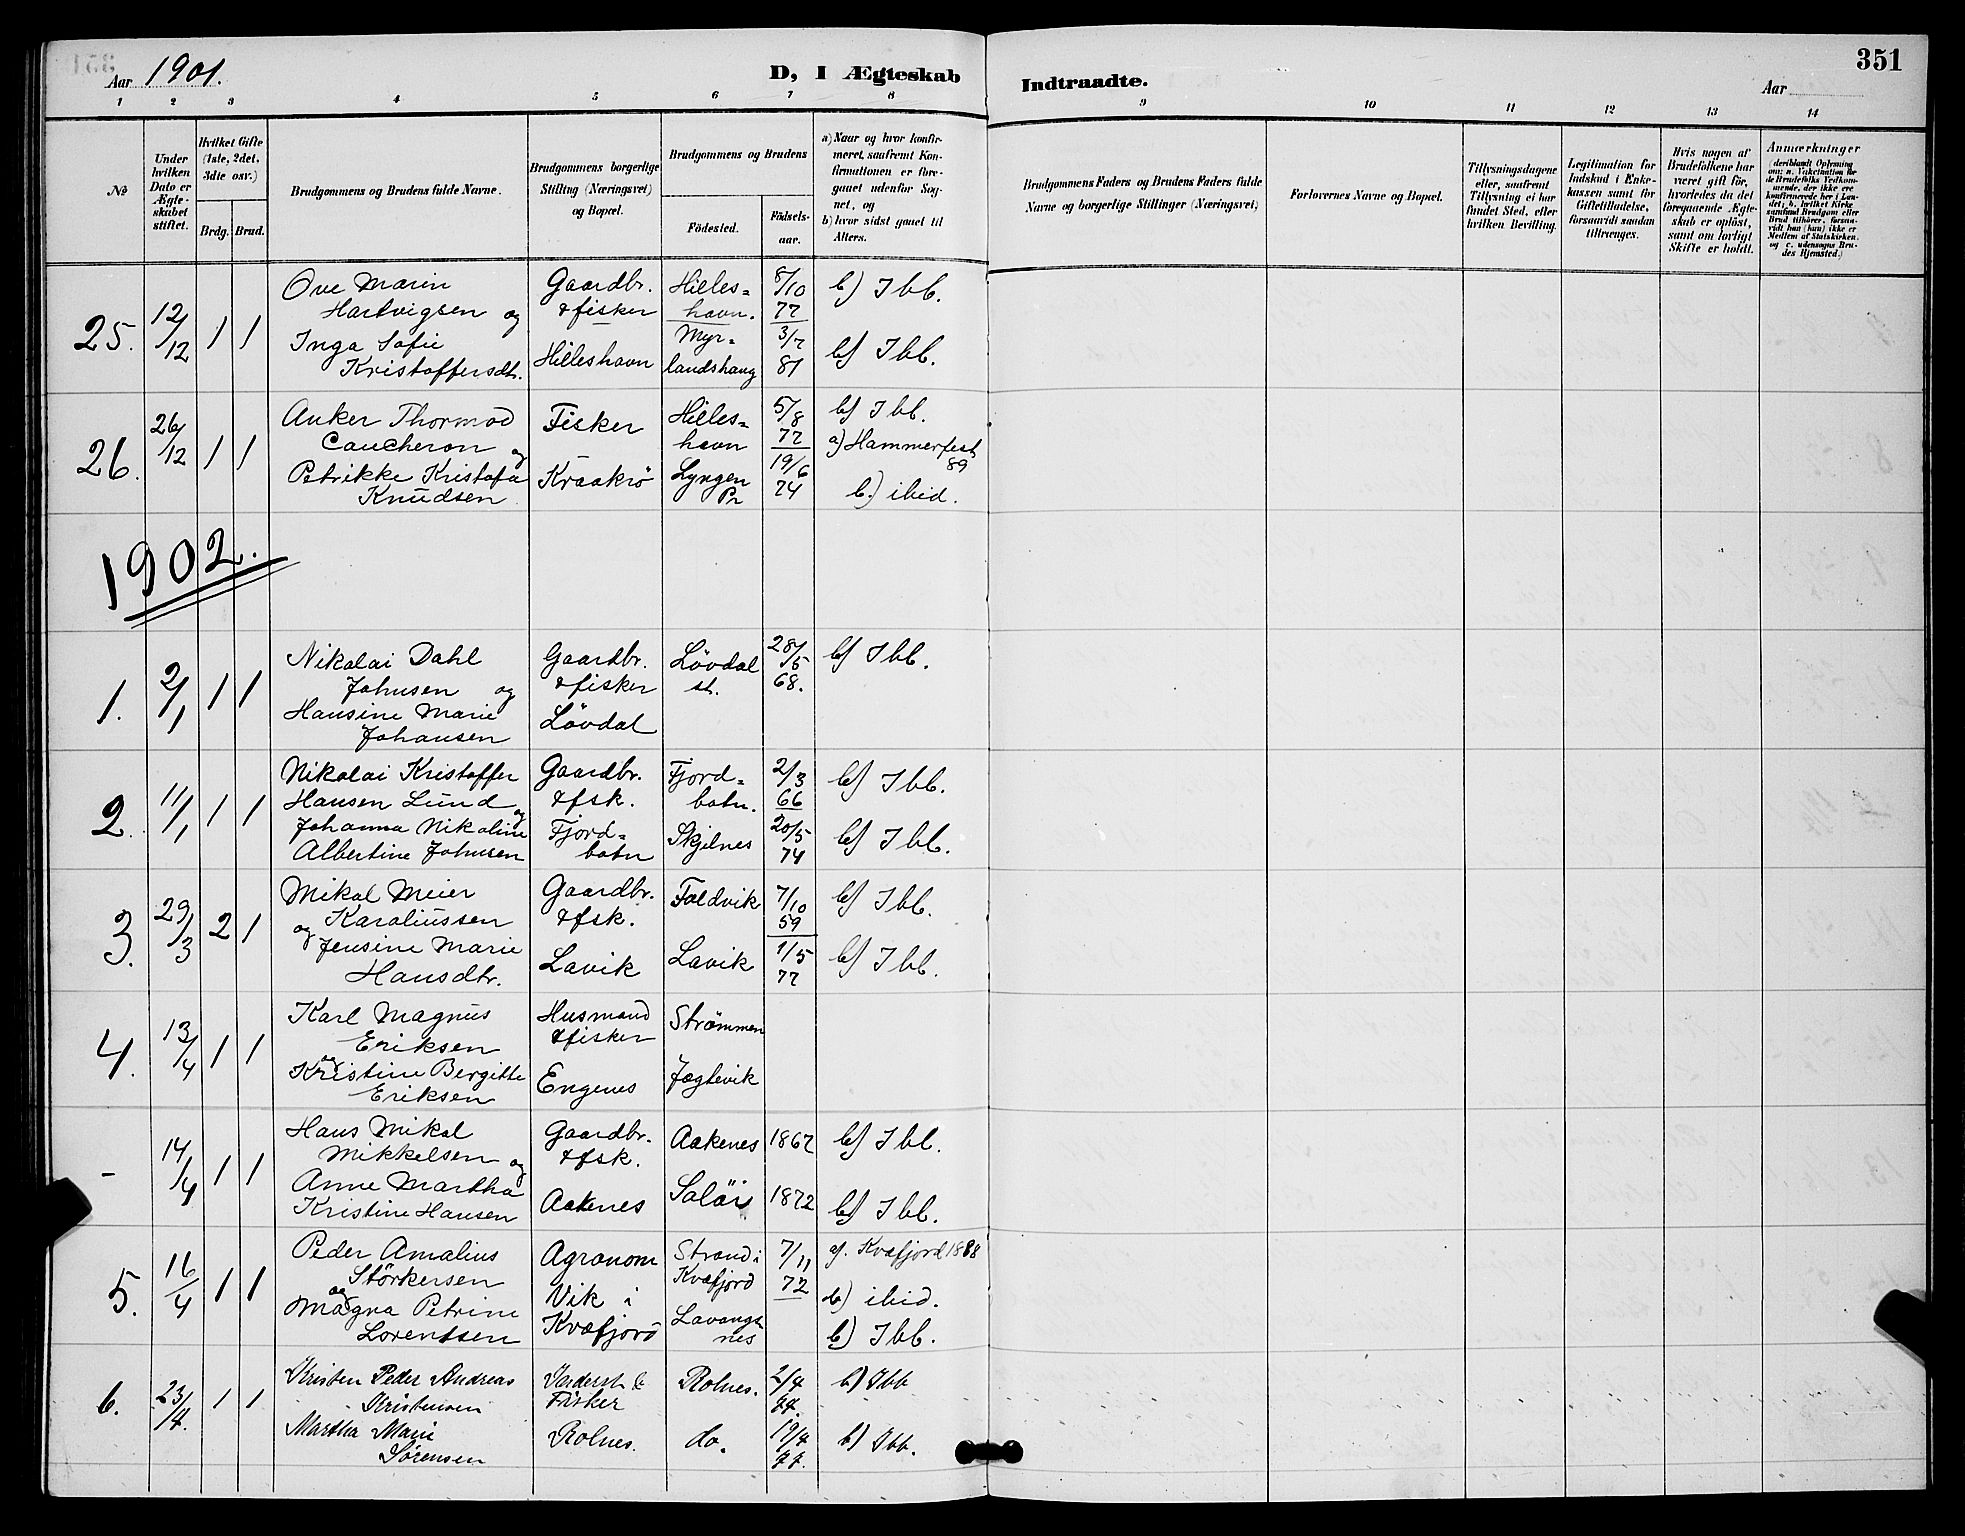 351
Aar 1901.
D, I Ægteskab
Indtraadte.
Aar
1 2 3 4 5 6 7 8 9 10 11 12 13 14
№
Under hvilken Dato er Ægteskabet stiftet.
Hvilket Gifte (1ste, 2det, 3die osv.)
Brdg. Brud.
Brudgommens og Brudens fulde Navne.
Brudgommens borgerlige Stilling (Næringsvei) og Bopæl.
Brudgommens og Brudens
Födested.
Födselsaar.
a) Naar og hvor konfirmeret, saafremt Konfirmationen er foregaaet udenfor Sognet, og
b) hvor sidst gaaet til Alters.
Brudgommens Faders og Brudens Faders fulde Navne og borgerlige Stillinger (Næringsvei)
Forlovernes Navne og Bopæl.
Tillysningsdagene eller, saafremt Tillysning ei har fundet Sted, efter hvilken Bevilling.
Legitimation for Indskud i Enkekassen samt for Giftetilladelse, forsaavidt saadan tiltrænges.
Hvis nogen af Brudefolkene har været gift för, hvorledes da det foregaaende Ægteskab er oplöst, samt om lovligt Skifte er holdt.
Anmærkninger
(deriblandt Oplysning om: a. Vakcination for de Brudefolks Vedkommende, der ikke ere konfirmerede her i Landet; b. hvilket Kirkesamfund Brudgom eller Brud tilhörer, forsaavidt han (hun) ikke er Medlem af Statskirken, og c. udensogns Brudes Hjemsted.)
25. 12/12 1 1
Ove Marin
Hartvigsen og
Inga Sofie
Kristoffersdtr.
Gaardbr.
& fisker
Hilleshavn
Hilles=
havn.
Myr=
landshaug
8/10
77
3/7
81
b) Ibb.
b) Ibb.
26. 26/12 1 1
Anker Thormod
Caucheron og
Petrikke Kristofa
Knudsen
Fisker
Kraakrö
Hilles=
havn
Lyngen
Pr
5/8
72
19/6
74
b) Ibb.
a) Hammerfest
89
b.) ibid.
1902.
1. 2/1 1 1
Nikolai Dahl
Johnsen og
Hansine Marie
Johansen
Gaardbr.
& fisker
Lövdal
Lövdal
st.
28/5
68.
b) Ibb.
2. 11/1 1 1
Nikolai Kristoffer
Hansen Lund og
Johanna Nikoline
Albertine Johnsen
Gaardbr.
& fsk.
Fjord=
botn
Fjord=
botn.
Skjelnes
2/3
66
20/5
74
b) Ibb.
b) Ibb.
3. 29/3 2 1
Mikal Meier
Karoliussen
og Jensine Marie
Hansdtr.
Gaardbr.
& fsk.
Lavik
Foldvik
Lavik
7/10
59
1/5
77
b) Ibb.
b) Ibb.
4. 13/4 1 1
Karl Magnus
Eriksen
og
Kristine Bergitte
Eriksen
Husmand
& fisker
Engenes
Strömmen
Jægtevik
- 14/4 1 1
Hans Mikal
Mikkelsen og
Anne Martha
Kristine Hansen
Gaardbr.
& fsk.
Aakenes
Aakenes
Salöi
1867
1872
b) Ibb.
b) Ibb.
5. 16/4 1 1
Peder Amalius
Störkersen
og
Magna Petrine
Lorentsen
Agronom
Vik i
Kvæfjord
Strand i
Kvæfjord
Lavangs=
nes
7/11
72
a). Kvæfjord 1888
b) ibid.
b) Ibb.
6. 23/4. 1 1
Kristen Peder Andreas
Kristensen
Martha Marie
Sörensen
&
Fisker
Rolnes.
Rolnes.
do.
2/4
77.
19/4
77.
b) Ibb
b) Ibb.